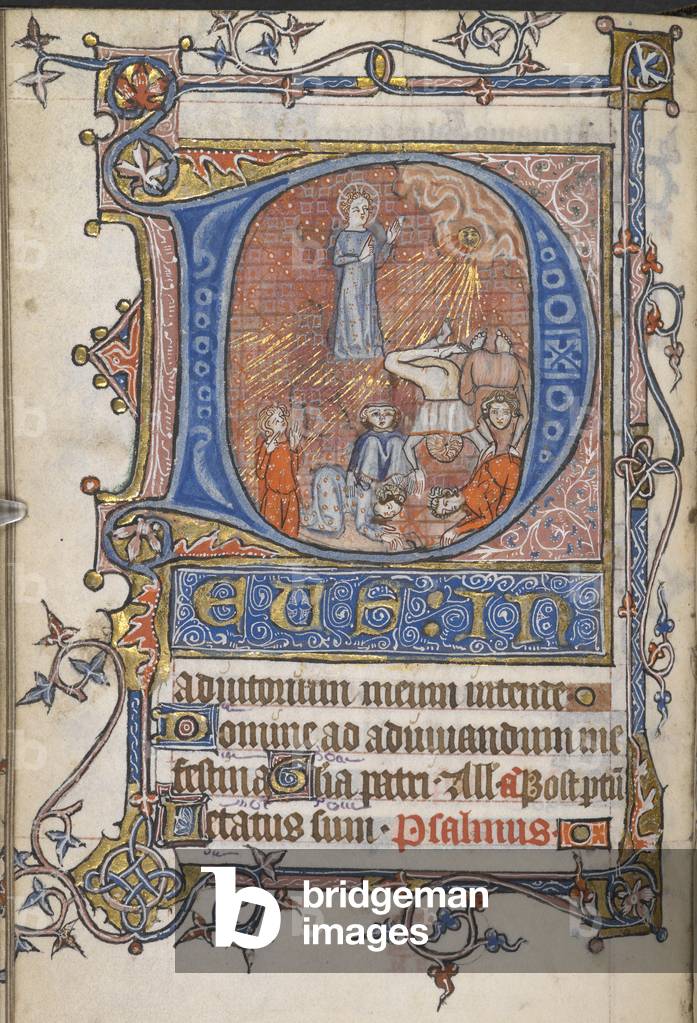 D
EUS : IN
adiutorium meum intende
Domine ad adiuuandum me
festina Glia patri · All' a Post ptū
Letatus sum · Psalmus ·
b bridgeman
images